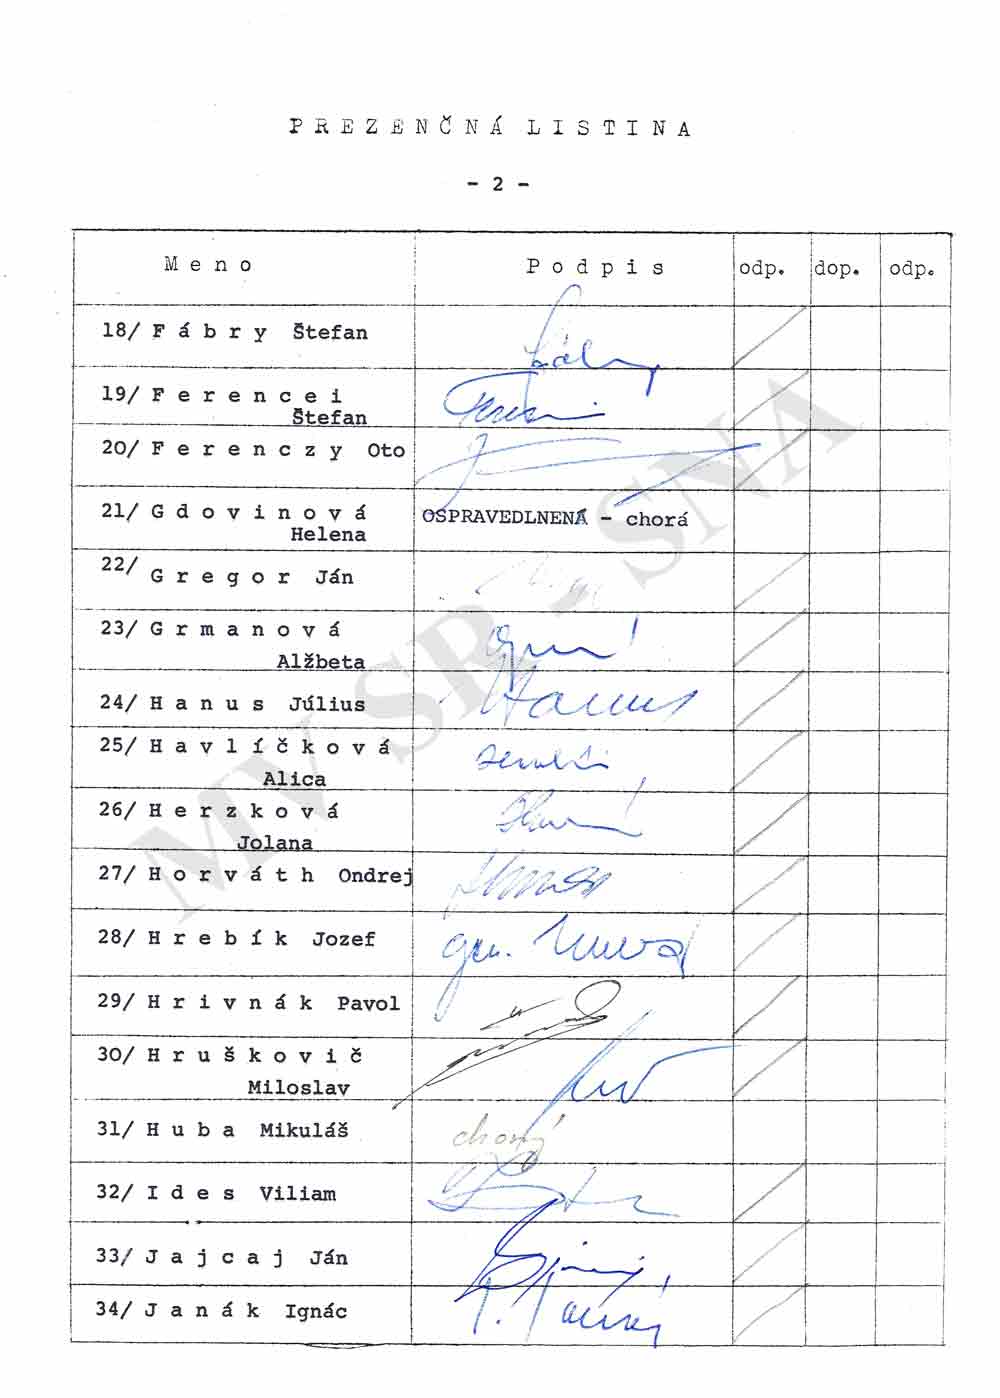 P R E Z E N Č N Á L I S T I N A
- 2 -
M e n o P o d p i s odp. dop. odp.
18/ F á b r y Štefan
19/ F e r e n c e i
Štefan
20/ F e r e n c z y Oto
21/ G d o v i n o v á OSPRAVEDLNENÁ - chorá
Helena
22/ G r e g o r Ján
23/ G r m a n o v á
Alžbeta
24/ H a n u s Július Hanus
25/ H a v l í č k o v á
Alica
26/ H e r z k o v á
Jolana
27/ H o r v á t h Ondrej
28/ H r e b í k Jozef
29/ H r i v n á k Pavol
30/ H r u š k o v i č
Miloslav
31/ H u b a Mikuláš chorý
32/ I d e s Viliam
33/ J a j c a j Ján
34/ J a n á k Ignác
MV SR - SNA